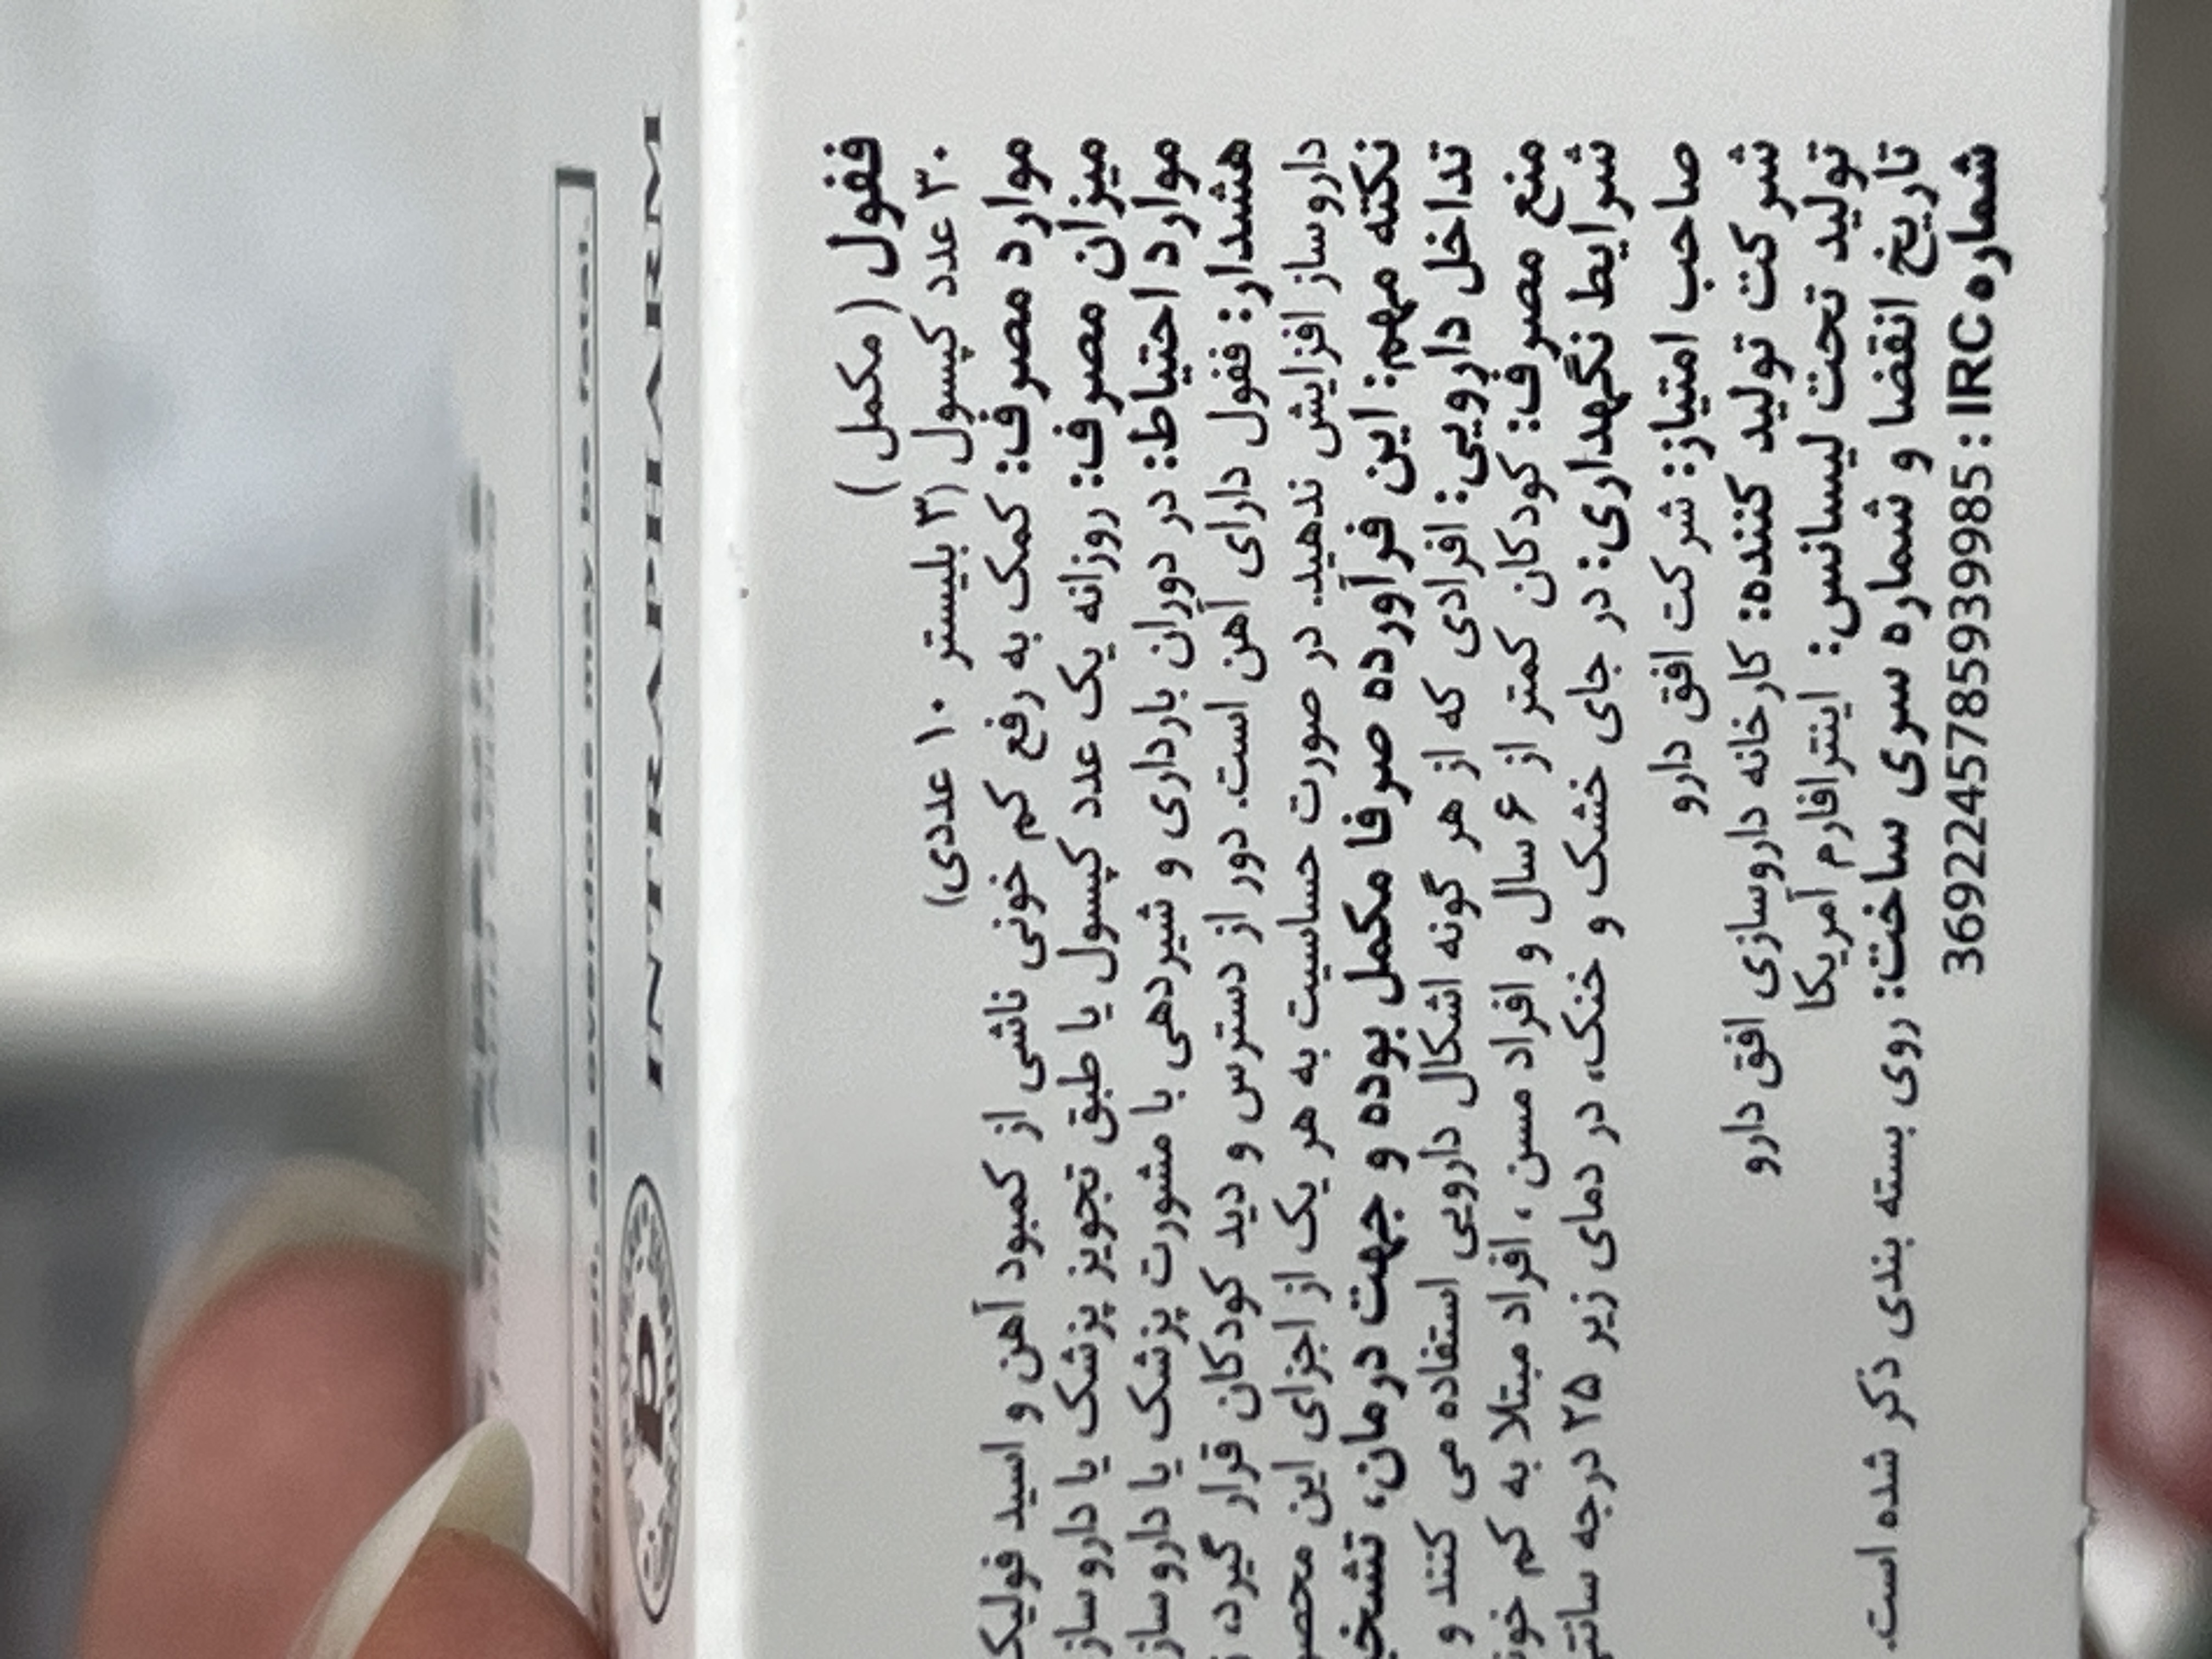 ففول ( مکمل )
۳۰ عدد کپسول (۳ بلیستر ۱۰ عددی)
موارد مصرف: کمک به رفع کم خونی ناشی از کمبود آهن و اسید فولیک
میزان مصرف: روزانه یک عدد کپسول یا طبق تجویز پزشک یا داروساز
موارد احتیاط: در دوران بارداری و شیردهی با مشورت پزشک یا داروساز
هشدار: ففول دارای آهن است. دور از دسترس و دید کودکان قرار گیرد،
داروساز افزایش ندهید. در صورت حساسیت به هر یک از اجزای این
نکته مهم: این فرآورده صرفا مکمل بوده و جهت درمان،
تداخل دارویی: افرادی که از هر گونه اشکال دارویی استفاده می کنند و
منع مصرف: کودکان کمتر از ۶ سال و افراد مسن ، افراد مبتلا به کم
شرایط نگهداری: در جای خشک و خنک، در دمای زیر ۲۵ درجه
صاحب امتیاز: شرکت افق دارو
شرکت تولید کننده: کارخانه داروسازی افق دارو
تولید تحت لیسانس: اینترافارم آمریکا
تاریخ انقضا و شماره سری ساخت: روی بسته بندی ذکر شده است.
شماره IRC : 3692245785939985
INTRAPHARM
as overdose may be fatal.